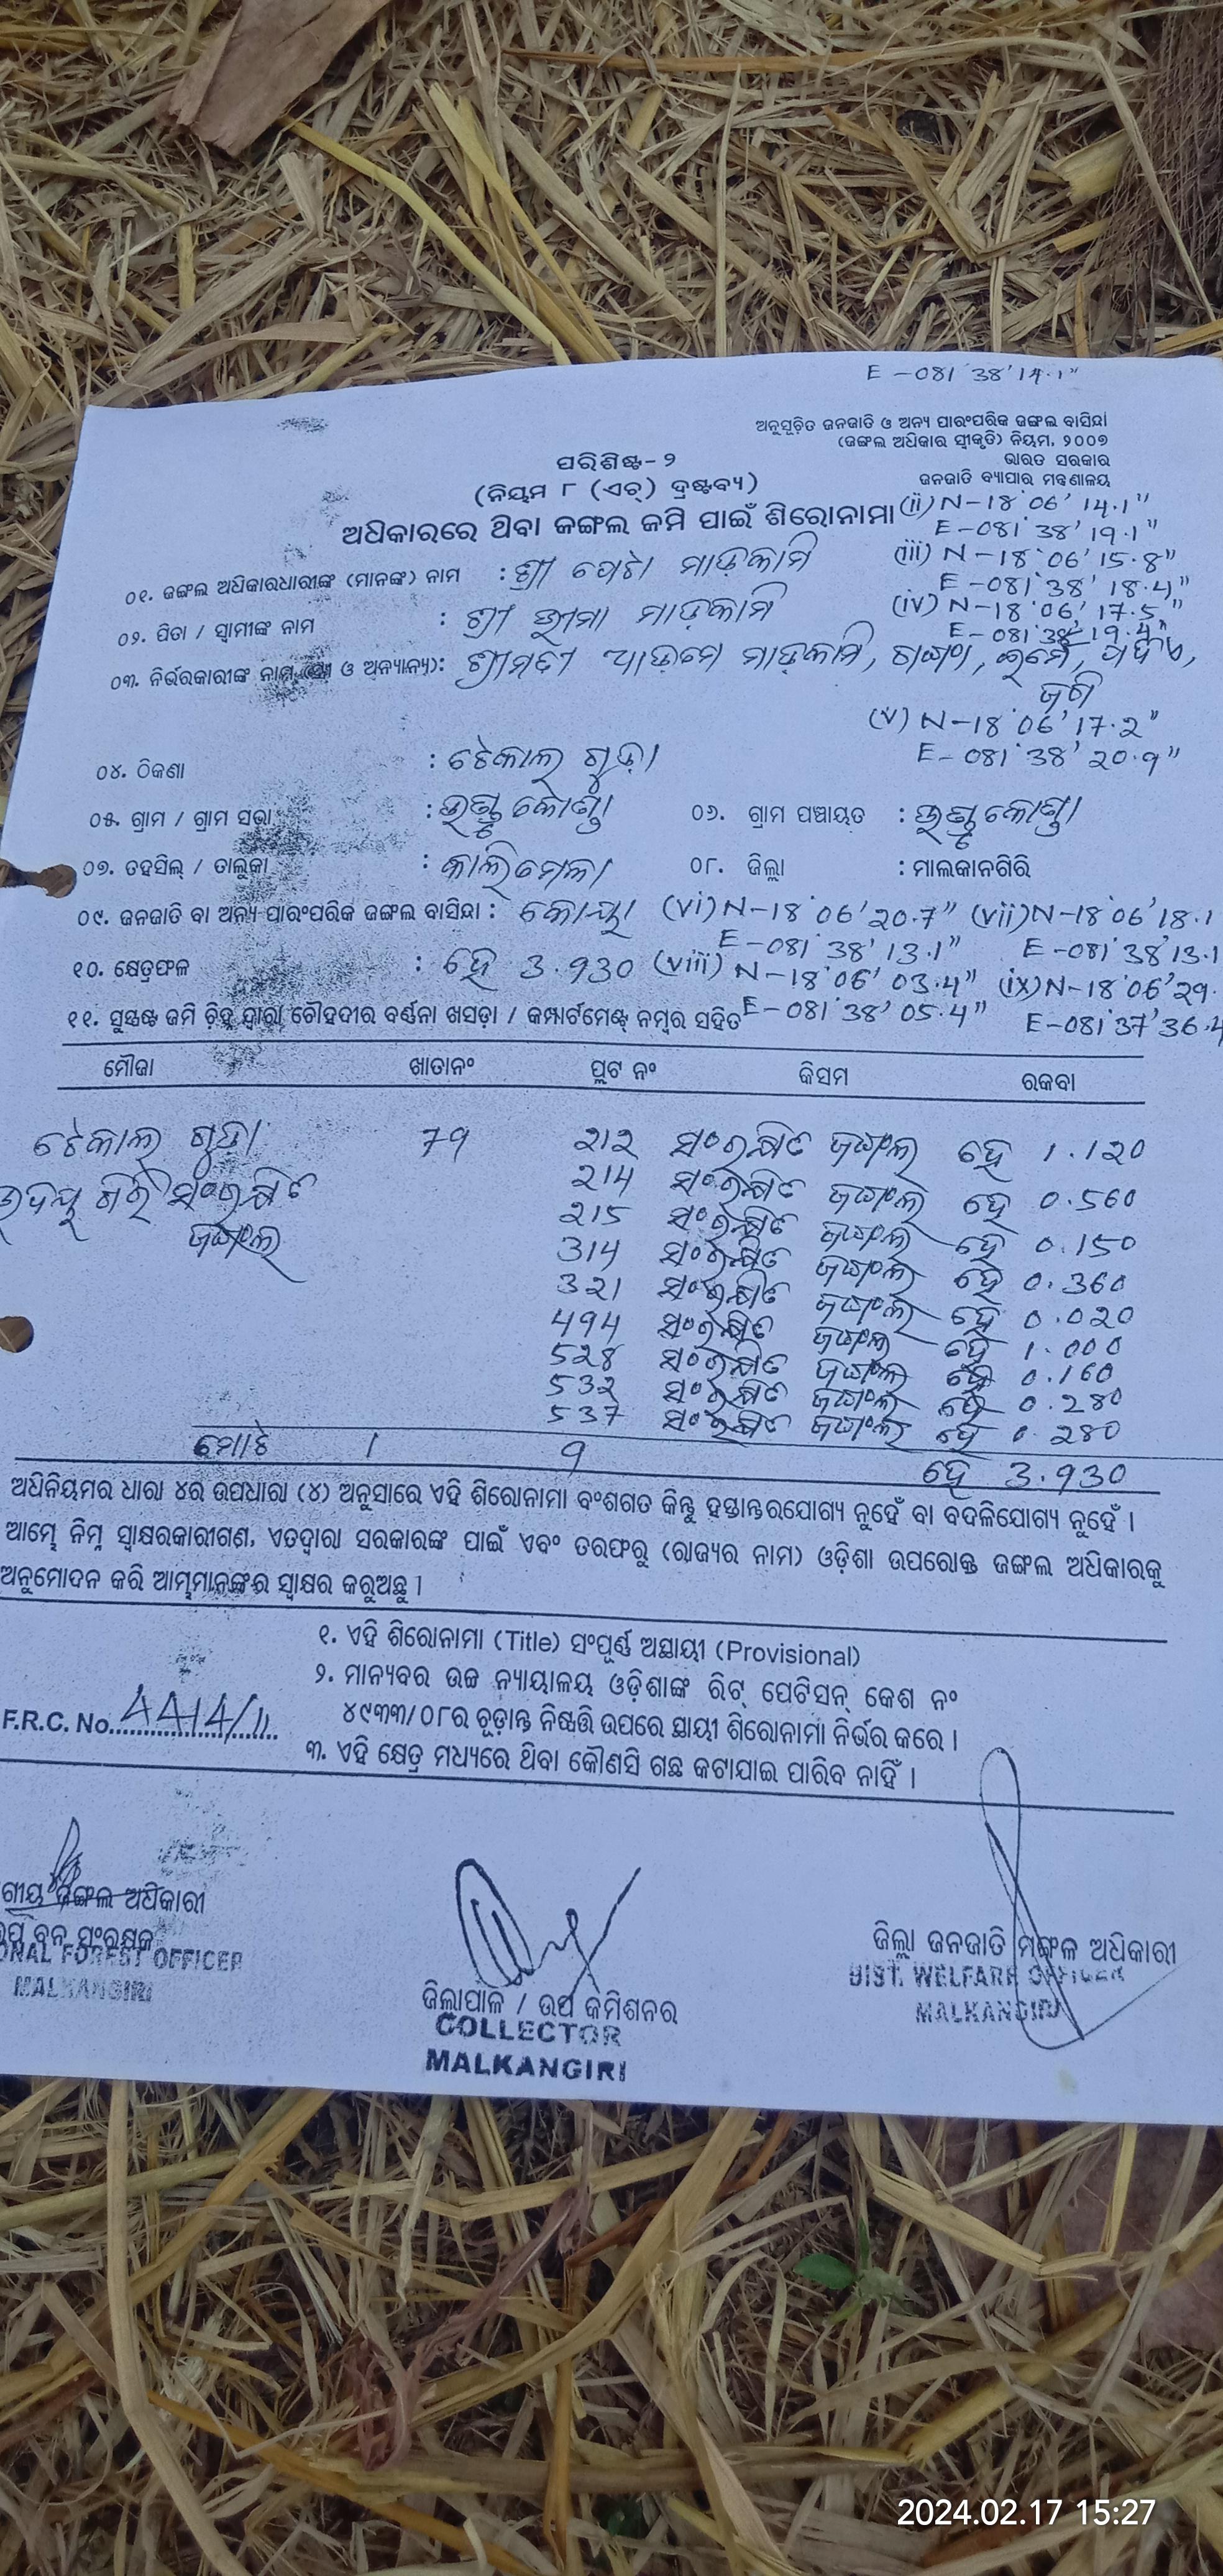 E-081°38'14.1"
ଅନୁସୂଚିତ ଜନଜାତି ଓ ଅନ୍ୟ ପାରଂପରିକ ଜଙ୍ଗଲ ବାସିନ୍ଦା
(ଜଙ୍ଗଲ ଅଧିକାର ସ୍ୱୀକୃତି) ନିୟମ, ୨୦୦୭
ଭାରତ ସରକାର
ଜନଜାତି ବ୍ୟାପାର ମନ୍ତ୍ରଣାଳୟ
ପରିଶିଷ୍ଟ-୨
(ନିୟମ ୮ (ଏଚ୍) ଦ୍ରଷ୍ଟବ୍ୟ)
ଅଧିକାରରେ ଥିବା ଜଙ୍ଗଲ ଜମି ପାଇଁ ଶିରୋନାମା
(ii) N-18°06'14.1"
E-081°38'19.1"
(iii) N-18°06'15.8"
E-081°38'18.4"
(iv) N-18°06'17.5"
E-081°38'19.4"
୦୧. ଜଙ୍ଗଲ ଅଧିକାରଧାରୀଙ୍କ (ମାନଙ୍କ) ନାମ : ଶ୍ରୀ ମାଡ଼କାମି
୦୨. ପିତା / ସ୍ୱାମୀଙ୍କ ନାମ : ଶ୍ରୀ ମାଡ଼କାମି
୦୩. ନିର୍ଭରକାରୀଙ୍କ ନାମ (ସ୍ତ୍ରୀ ଓ ଅନ୍ୟାନ୍ୟ): ଶ୍ରୀମତୀ ମାଡ଼କାମି,
(v) N-18°06'17.2"
E-081°38'20.9"
୦୪. ଠିକଣା : ଟେକାଲ ଗୁଡ଼ା
୦୫. ଗ୍ରାମ / ଗ୍ରାମ ସଭା :
୦୬. ଗ୍ରାମ ପଞ୍ଚାୟତ :
୦୭. ତହସିଲ୍ / ତାଲୁକା : କାଲିମେଳା
୦୮. ଜିଲ୍ଲା : ମାଲକାନଗିରି
୦୯. ଜନଜାତି ବା ଅନ୍ୟ ପାରଂପରିକ ଜଙ୍ଗଲ ବାସିନ୍ଦା : କୋୟା (vi) N-18°06'20.7" (vii) N-18°06'18.1
E-081°38'13.1" E-081°38'13.1
୧୦. କ୍ଷେତ୍ରଫଳ : ହେ 3.930 (viii) N-18°06'03.4" (ix) N-18°06'29.
୧୧. ସୁସ୍ପଷ୍ଟ ଜମି ଚିହ୍ନ ଦ୍ୱାରା ଚୌହଦୀର ବର୍ଣ୍ଣନା ଖସଡ଼ା / କମ୍ପାର୍ଟମେଣ୍ଟ୍ ନମ୍ବର ସହିତ E-081°38'05.4" E-081°37'36.4
ମୌଜା ଖାତାନଂ ପ୍ଲଟ ନଂ କିସମ ରକବା
ଟେକାଲ ଗୁଡ଼ା 79 212 ସଂରକ୍ଷିତ ଜଙ୍ଗଲ ହେ 1.120
ଉଦୟ ଗିରି ସଂରକ୍ଷିତ 214 ସଂରକ୍ଷିତ ଜଙ୍ଗଲ ହେ 0.560
ଜଙ୍ଗଲ 215 ସଂରକ୍ଷିତ ଜଙ୍ଗଲ ହେ 0.150
314 ସଂରକ୍ଷିତ ଜଙ୍ଗଲ ହେ 0.360
321 ସଂରକ୍ଷିତ ଜଙ୍ଗଲ ହେ 0.020
494 ସଂରକ୍ଷିତ ଜଙ୍ଗଲ ହେ 1.000
528 ସଂରକ୍ଷିତ ଜଙ୍ଗଲ ହେ 0.160
532 ସଂରକ୍ଷିତ ଜଙ୍ଗଲ ହେ 0.280
537 ସଂରକ୍ଷିତ ଜଙ୍ଗଲ ହେ 0.280
ମୋଟ 1 9 ହେ 3.930
ଅଧିନିୟମର ଧାରା ୪ର ଉପଧାରା (୪) ଅନୁସାରେ ଏହି ଶିରୋନାମା ବଂଶଗତ କିନ୍ତୁ ହସ୍ତାନ୍ତରଯୋଗ୍ୟ ନୁହେଁ ବା ବଦଳିଯୋଗ୍ୟ ନୁହେଁ ।
ଆମ୍ଭେ ନିମ୍ନ ସ୍ୱାକ୍ଷରକାରୀଗଣ, ଏତଦ୍ୱାରା ସରକାରଙ୍କ ପାଇଁ ଏବଂ ତରଫରୁ (ରାଜ୍ୟର ନାମ) ଓଡ଼ିଶା ଉପରୋକ୍ତ ଜଙ୍ଗଲ ଅଧିକାରକୁ
ଅନୁମୋଦନ କରି ଆମ୍ଭମାନଙ୍କର ସ୍ୱାକ୍ଷର କରୁଅଛୁ ।
୧. ଏହି ଶିରୋନାମା (Title) ସଂପୂର୍ଣ୍ଣ ଅସ୍ଥାୟୀ (Provisional)
୨. ମାନ୍ୟବର ଉଚ୍ଚ ନ୍ୟାୟାଳୟ ଓଡ଼ିଶାଙ୍କ ରିଟ୍ ପେଟିସନ୍ କେଶ ନଂ
୪୯୩୩/୦୮ର ଚୂଡ଼ାନ୍ତ ନିଷ୍ପତ୍ତି ଉପରେ ସ୍ଥାୟୀ ଶିରୋନାମା ନିର୍ଭର କରେ ।
୩. ଏହି କ୍ଷେତ୍ର ମଧ୍ୟରେ ଥିବା କୌଣସି ଗଛ କଟାଯାଇ ପାରିବ ନାହିଁ ।
F.R.C. No. 4414/11
ଗୀୟ ଜଙ୍ଗଲ ଅଧିକାରୀ
ଉପ ବନ ସଂରକ୍ଷକ
ONAL FOREST OFFICER
MALKANGIRI
ଜିଲ୍ଲାପାଳ / ଉପ କମିଶନର
COLLECTOR
MALKANGIRI
ଜିଲ୍ଲା ଜନଜାତି ମଙ୍ଗଳ ଅଧିକାରୀ
DIST. WELFARE OFFICER
MALKANGIRI
2024.02.17 15:27